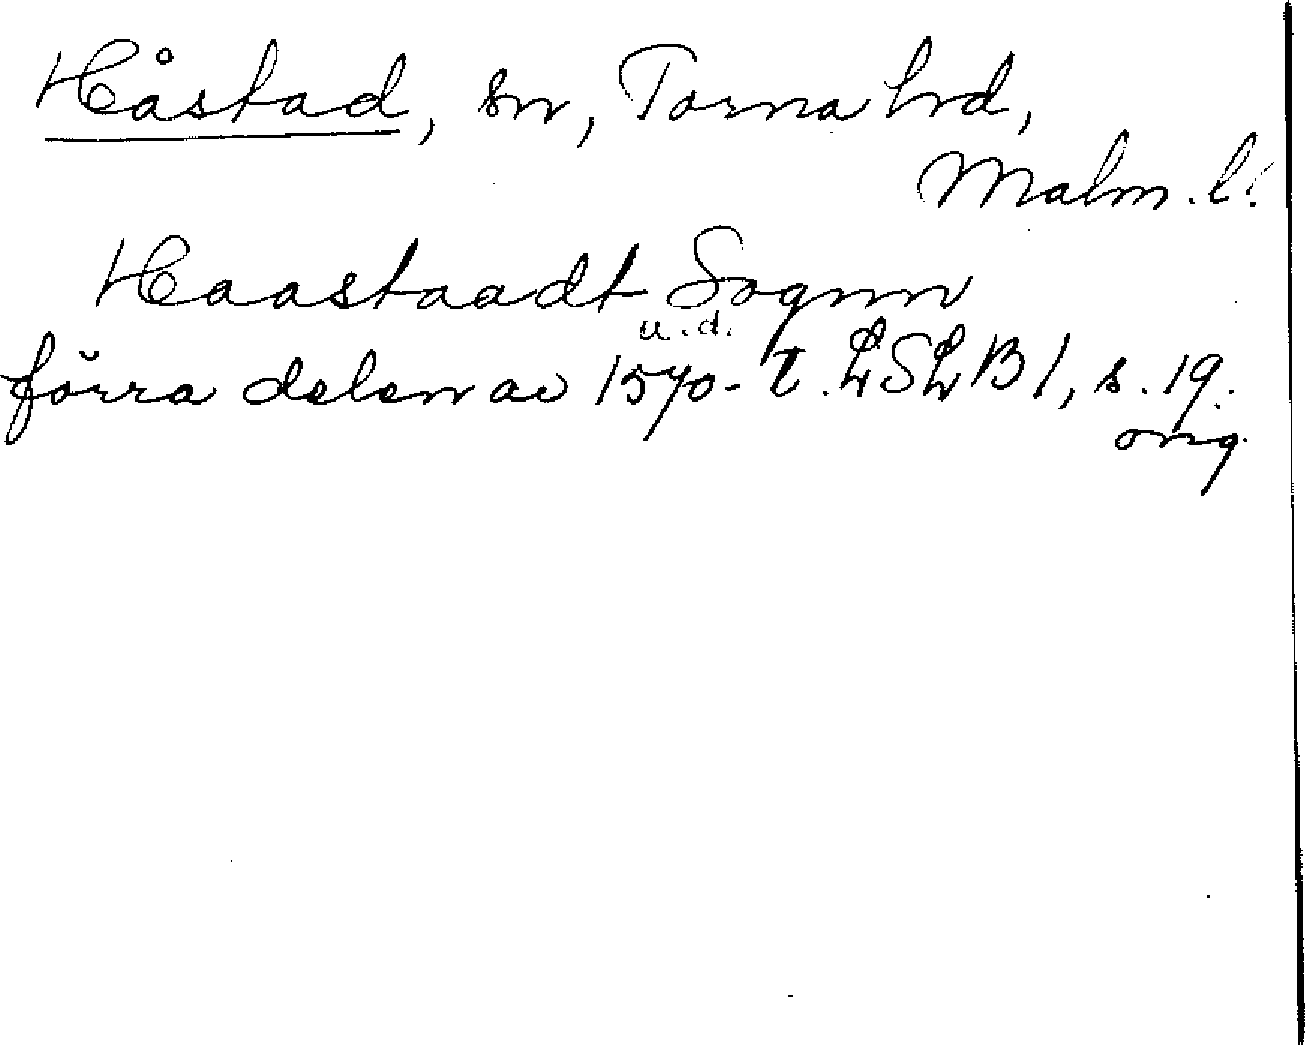 Håstad, sn, Torna hrd,
Malm. l.
Haastaadt Sognn
u.d.
förra delen av 1570-t. LSLB 1, s. 19.
orig.